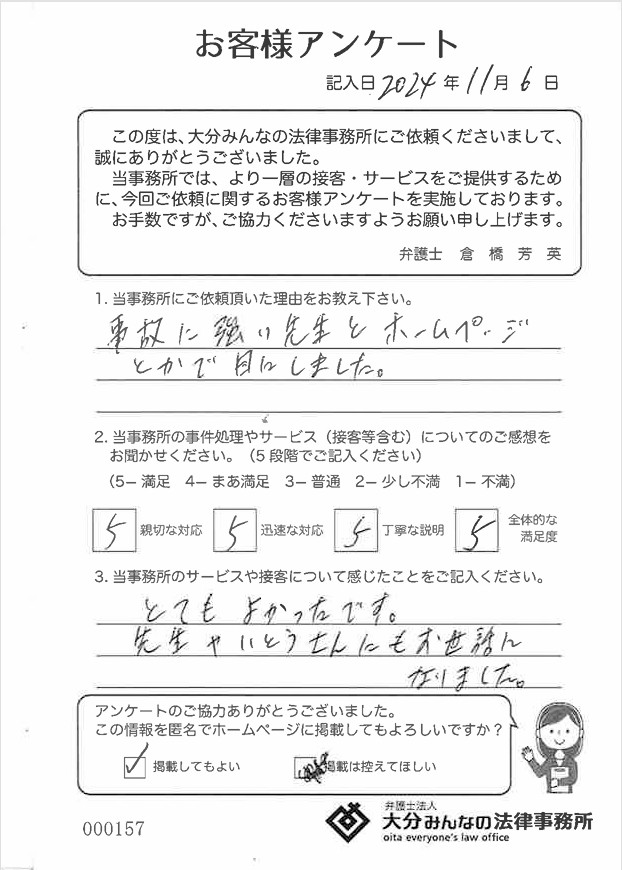 お客様アンケート
記入日 2024 年 11 月 6 日
この度は、大分みんなの法律事務所にご依頼くださいまして、
誠にありがとうございました。
当事務所では、より一層の接客・サービスをご提供するため
に、今回ご依頼に関するお客様アンケートを実施しております。
お手数ですが、ご協力くださいますようお願い申し上げます。
弁護士 倉橋芳英
1. 当事務所にご依頼頂いた理由をお教え下さい。
事故に強い先生とホームページ
とかで目にしました。
2. 当事務所の事件処理やサービス（接客等含む）についてのご感想を
お聞かせください。（5段階でご記入ください）
（5− 満足 4− まあ満足 3− 普通 2− 少し不満 1− 不満）
5 親切な対応 5 迅速な対応 5 丁寧な説明 5 全体的な
満足度
3. 当事務所のサービスや接客について感じたことをご記入ください。
とてもよかったです。
先生やいとうさんにもお世話に
なりました。
アンケートのご協力ありがとうございました。
この情報を匿名でホームページに掲載してもよろしいですか？
掲載してもよい 掲載は控えてほしい
000157
弁護士法人
大分みんなの法律事務所
oita everyone's law office